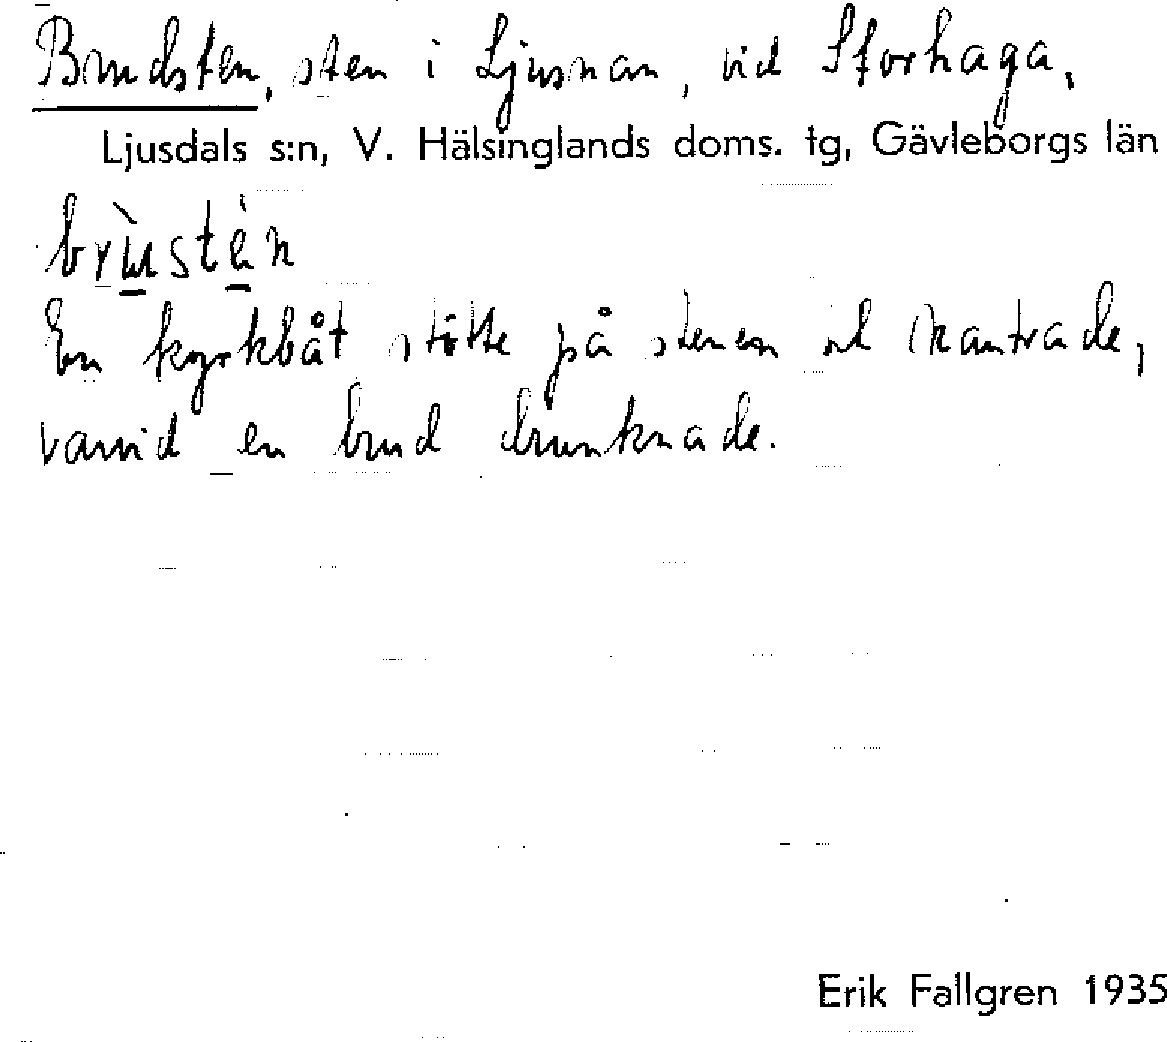 Brudsten, sten i Ljusnan, vid Storhaga,
Ljusdals s:n, V. Hälsinglands doms. tg, Gävleborgs län
En kyrkbåt stötte på stenen och kantrade,
varvid en brud drunknade.
Erik Fallgren 1935